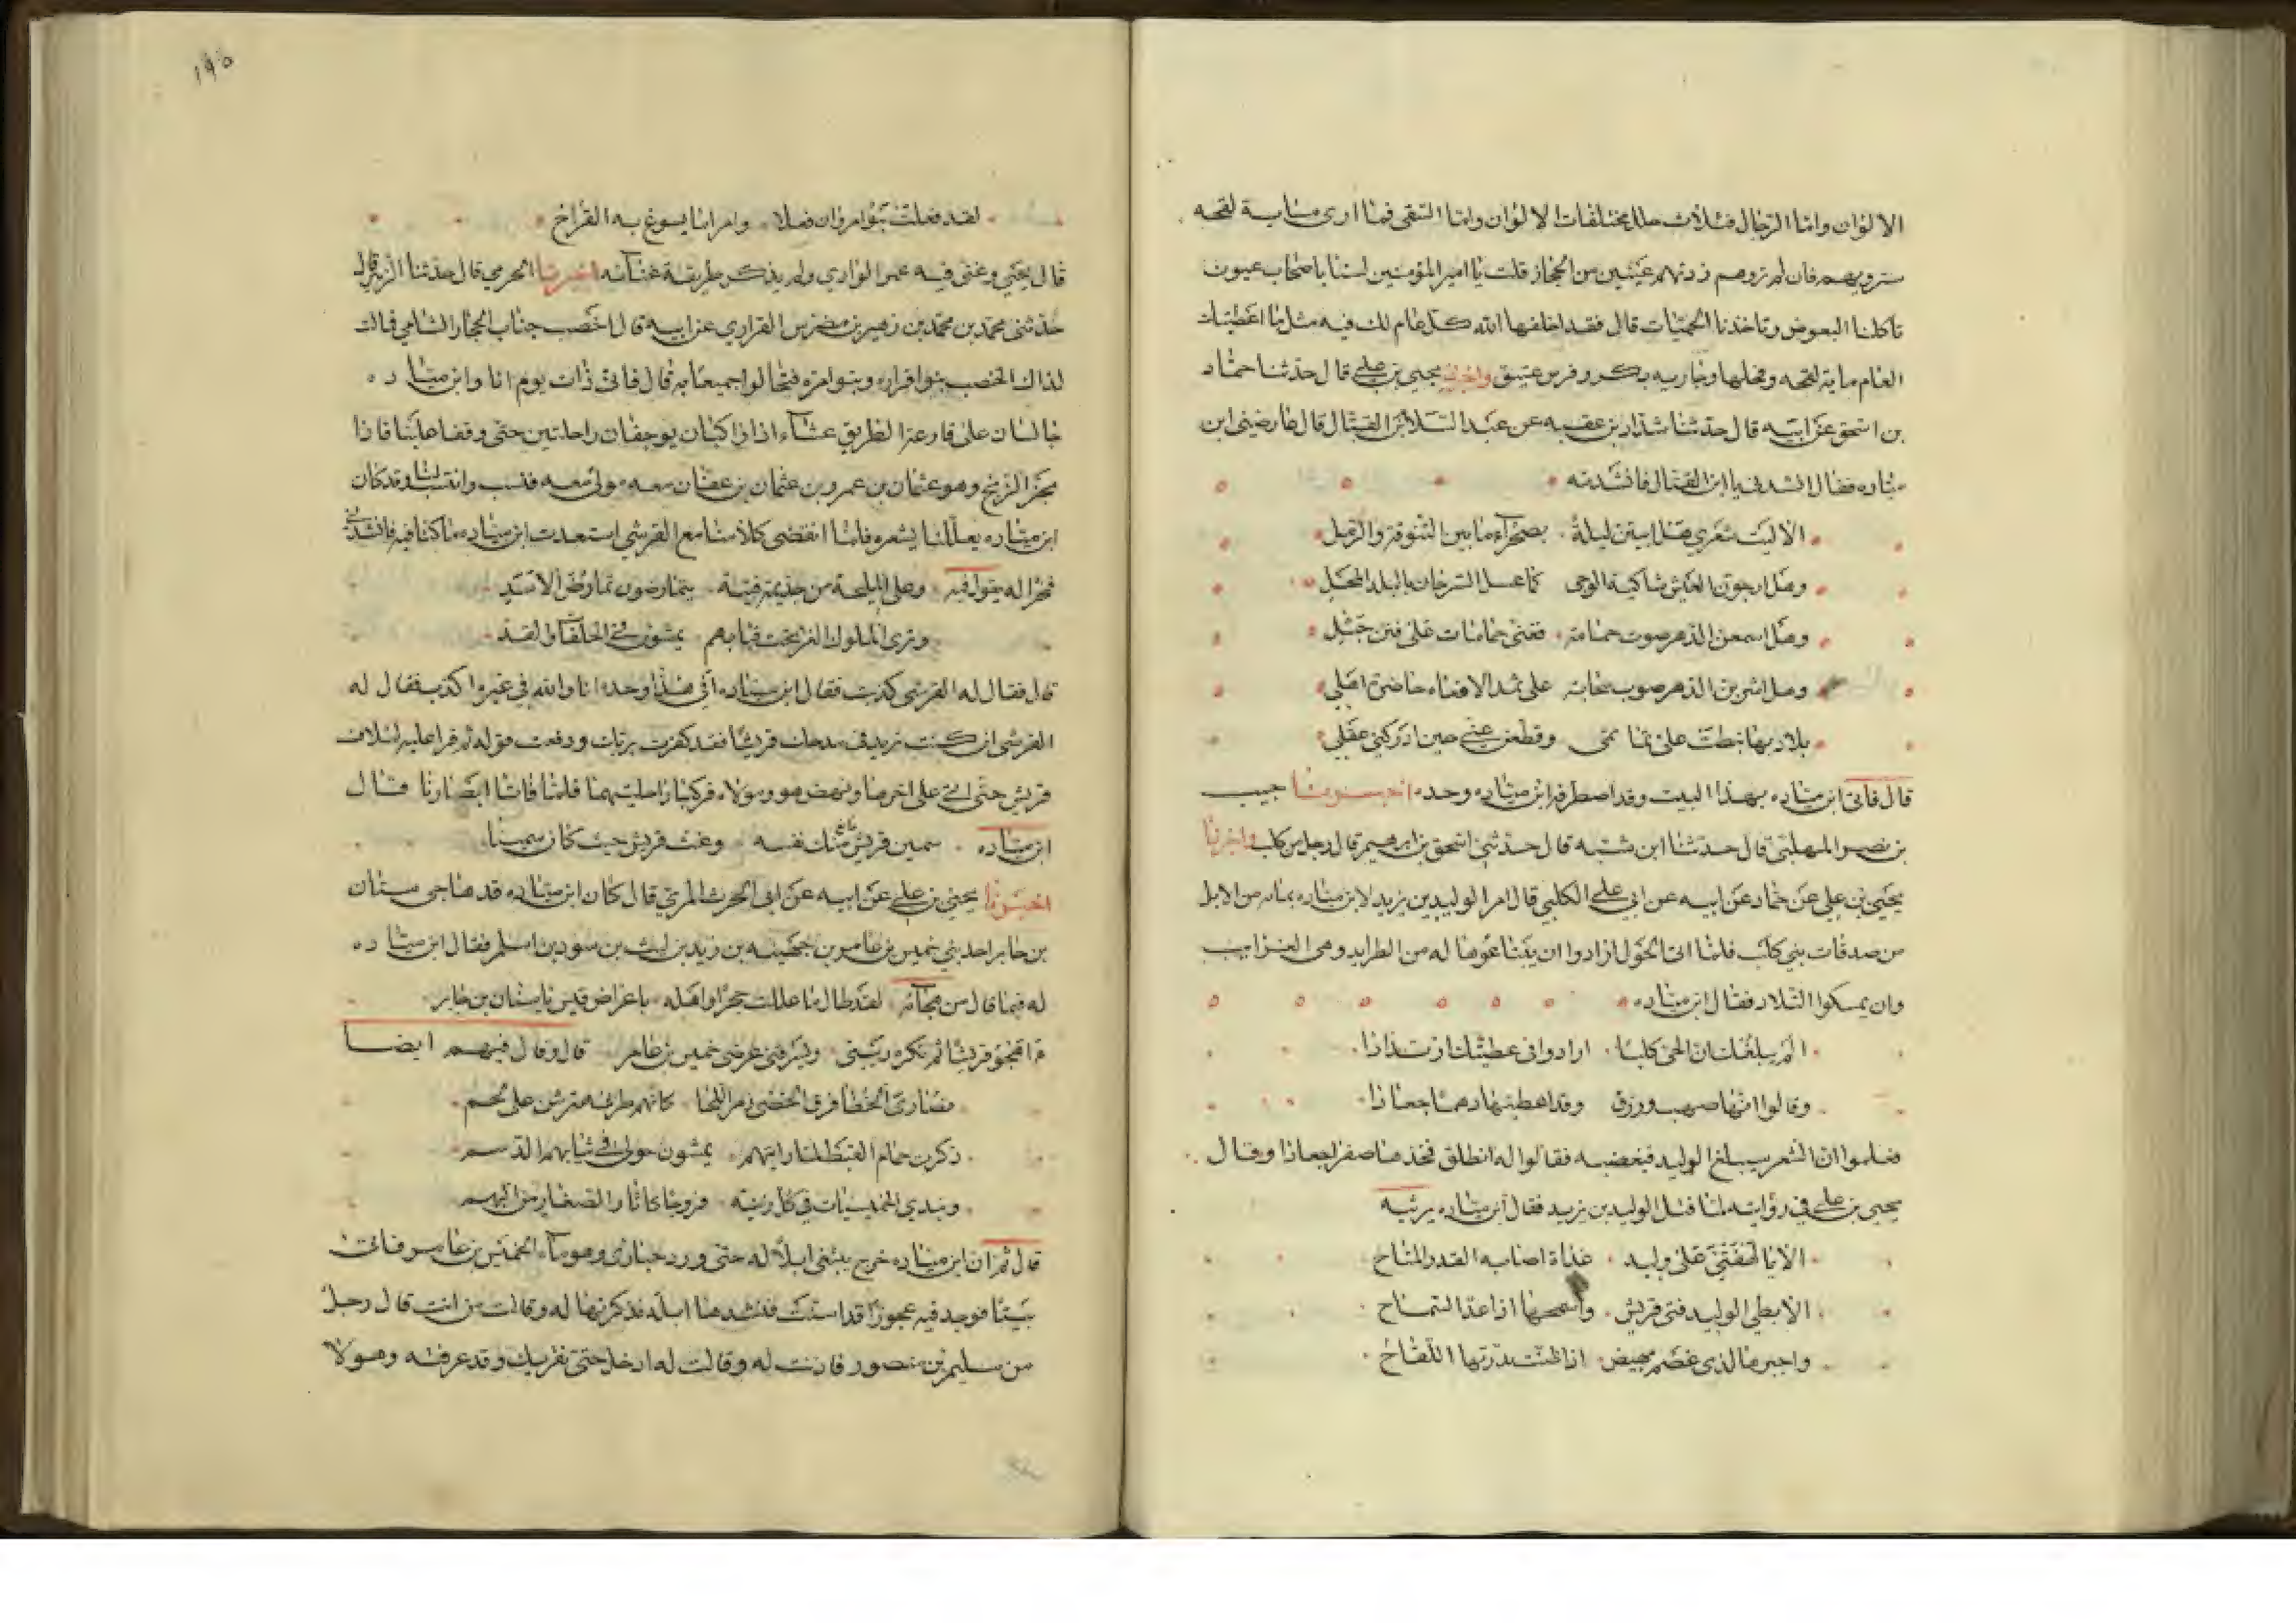 الالوان واما الرجال فثلاث حلل مختلفات الالوان واما السقى فما ارى مناية لقحه
سترويهم فان لم تروهم زدتهم عينين من الحجاز قلت يا امير المؤمنين لسنا باصحاب عيون
تاكلنا البعوض وتاخذنا الحميات قال فقد اخلفها الله كل عام لك فيه مثل ما اعطيتك
العام ماية لقحه وفحلها وجاريه بكر وفرس عتيق واخبرني يحيى بن علي قال حدثنا حماد
بن اسحق عن ابيه قال حدثنا شداد بن عقبه عن عبد السلام بن القتال قال عارضنى ابن
مياده فقال انشدنى يا ابن القتال فانشدته
الا ليت شعري هل ابيتن ليلة بصحرآء ما بين التنوفة والرمل
وهل ازجرن العيس شاكية الوجى كما عسل السرحان بالبلد المحل
وهل اسمعن الدهر صوت حمامة تغنى حمامات على فنن جثل
وهل اشربن الدهر صوب سحابة على ثمد الافعاه حاضرة اهلي
بلاد بها نيطت على تمائمى وقطعن عنى حين ادركنى عقلي
قال فاتى ابن مياده بهذا البيت وقد اصطرفه ابن مياده وحده اخبرنا حبيب
بن نصر المهلبي قال حدثنا ابن شبه قال حدثنى اسحق بن ابرهيم قال رجل من كلب واخبرنا
يحيى بن علي عن حماد عن ابيه عن ابي علي الكلبي قال امر الوليد بن يزيد لابن مياده بمايه من الابل
من صدقات بني كلب فلما اتى الحول ارادوا ان يبتاعوها له من الطرايد وهى الغرايب
وان يمسكوا التلاد فقال ابن مياده
الم يبلغك ان الحى كلبا ارادوا فى عطيتك ارتدادا
وقالوا انها صهب وورق وقد اعطيتها دهما جعادا
فعلموا ان الشعر سيبلغ الوليد فيغضبه فقالوا له انطلق فخذها صفرا جعادا وقال
يحيى بن علي في روايته لما قتل الوليد بن يزيد فقال ابن مياده يرثيه
الا يا لهفتى على وليد غداة اصابه القدر المتاح
الا بكى الوليد فتى قريش واسمحها اذا عد السماح
واجبرها لذى عضم مهيض اذا ضنت بدرتها اللقاح
١٩٥
لقد فعلت بنو مروان فعلا وامرا ما يسوغ به القراح
قال يحيى وغنى فيه عمر الوادي ولم يذكر طريقة غنآئه اخبرنا الحرمي قال حدثنا الزبير قال
حدثنى محمد بن محمد بن زهير بن مضرس الفزاري عن ابيه قال اخصب جناب الحجاز الشامي فمالت
لذلك الخصب بنو افزاره وبنو مرة فتحالوا جميعا به قال فاني ذات يوم انا وابن مياده
جالسان على قارعة الطريق عشآء اذا راكبان يوجفان راحلتين حتى وقفا علينا فاذا
الريح وهو عثمان بن عمرو بن عثمان بن عفان معه مولى معه فنسب وانتسب لنا وقد كان
ابن مياده يعللنا بشعره فلما انقضى كلامنا مع القرشي استعدت ابن مياده ما كنا فيه فانشدنى
فخرا له يقول فيه وعلى المليحة من جذيمة فتية يتمارضون تمارض الاسد
وترى الملوك الغر تحت قبابهم يمشون فى الحلقات والقد
قال فقال له القرشى كذبت فقال ابن مياده أفي هذا وحده انا والله في غيره اكذب فقال له
القرشى ان كنت تريد فى مدحك قريشا فقد كفرت بربك ودفعت قوله ثم قرا عليه لئلاف
قريش حتى اتى على اخرها ونهض هو ومولاه فركبا راحلتيهما فلما فاتا ابصارنا قال
ابن مياده سمين قريش مانع منك نفسه وغث قريش حيث كان سمينا
اخبرنا يحيى بن علي عن ابيه عن ابى الحرث المرى قال كان ابن مياده قد هاجى سنان
بن جابر احد بني خميس بن عامر بن جهينه بن زيد بن ليث بن سود بن اسلم فقال ابن مياده
له فيما قال من هجآئه لقد طال ما عللت حجرا واهله باعراض قيس يا سنان بن جابر
أاهجو قريشا ثم تكره ريبتي ويسرقنى عرضى خميس بن عامر قال وقال فيهم ايضا
قصارى الخطا فرق الخصى زمر اللحا كانهم ظربى اهترشن على لحم
ذكرت حمام القيظ لما رايتهم يمشون حولى فى ثيابهم الدسم
وتبدى الخميسيات في كل زينة فروجا كاثار الصغار من البهم
قال ثم ان ابن مياده خرج يبتغي ابلا له حتى ورد جبارى وهو مآء الخميس بن عامر فاتى
بيتا فوجد فيه عجوزا قد اسنت فنشدها ابله فذكرتها له وقالت من انت قال رجل
من سليم بن منصور فاذنت له وقالت له ادخل حتى نقريك وقد عرفته وهو لا